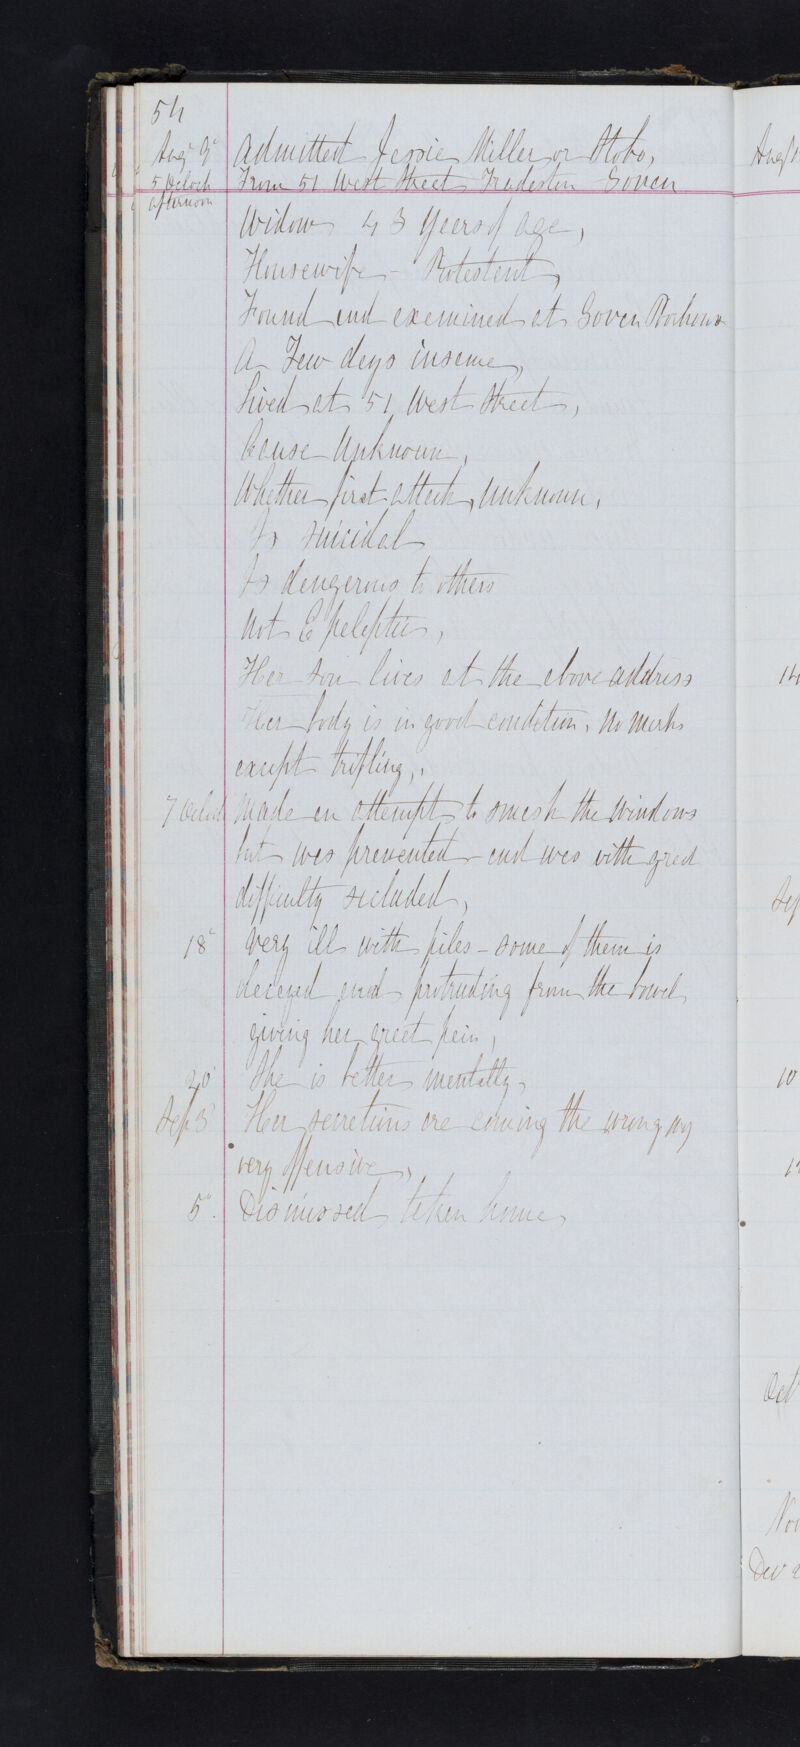 54
Augt 9th Admitted Jessie Miller or Stobo,
5 Oclock From 51 West Street Tradeston Govan
afternoon
Widow 43 Years of age,
Housewife - Protestant,
Found and examined at Govan Poorhouse
A Few days insane,
Lived at 51 West Street,
Cause Unknown,
Whether first attack, Unknown,
Is suicidal
Is dangerous to others
Not Epeleptic,
Her son lives at the above address
Her body is in good condition, no marks
except trifling,.
7 Oclock Made an attempt to smash the windows
but was prevented and was with gred
difficulty secluded,
18th Very ill with piles - some of them is
decayed and protruding from the bowel
giving her great pain,
20th She is better mentally,
Sep 3d Her secretions are coming the wrong way
very offensive,
5th. Dismissed taken home,
Aug
14
Sep
10
Oct
Nov
Dec 2